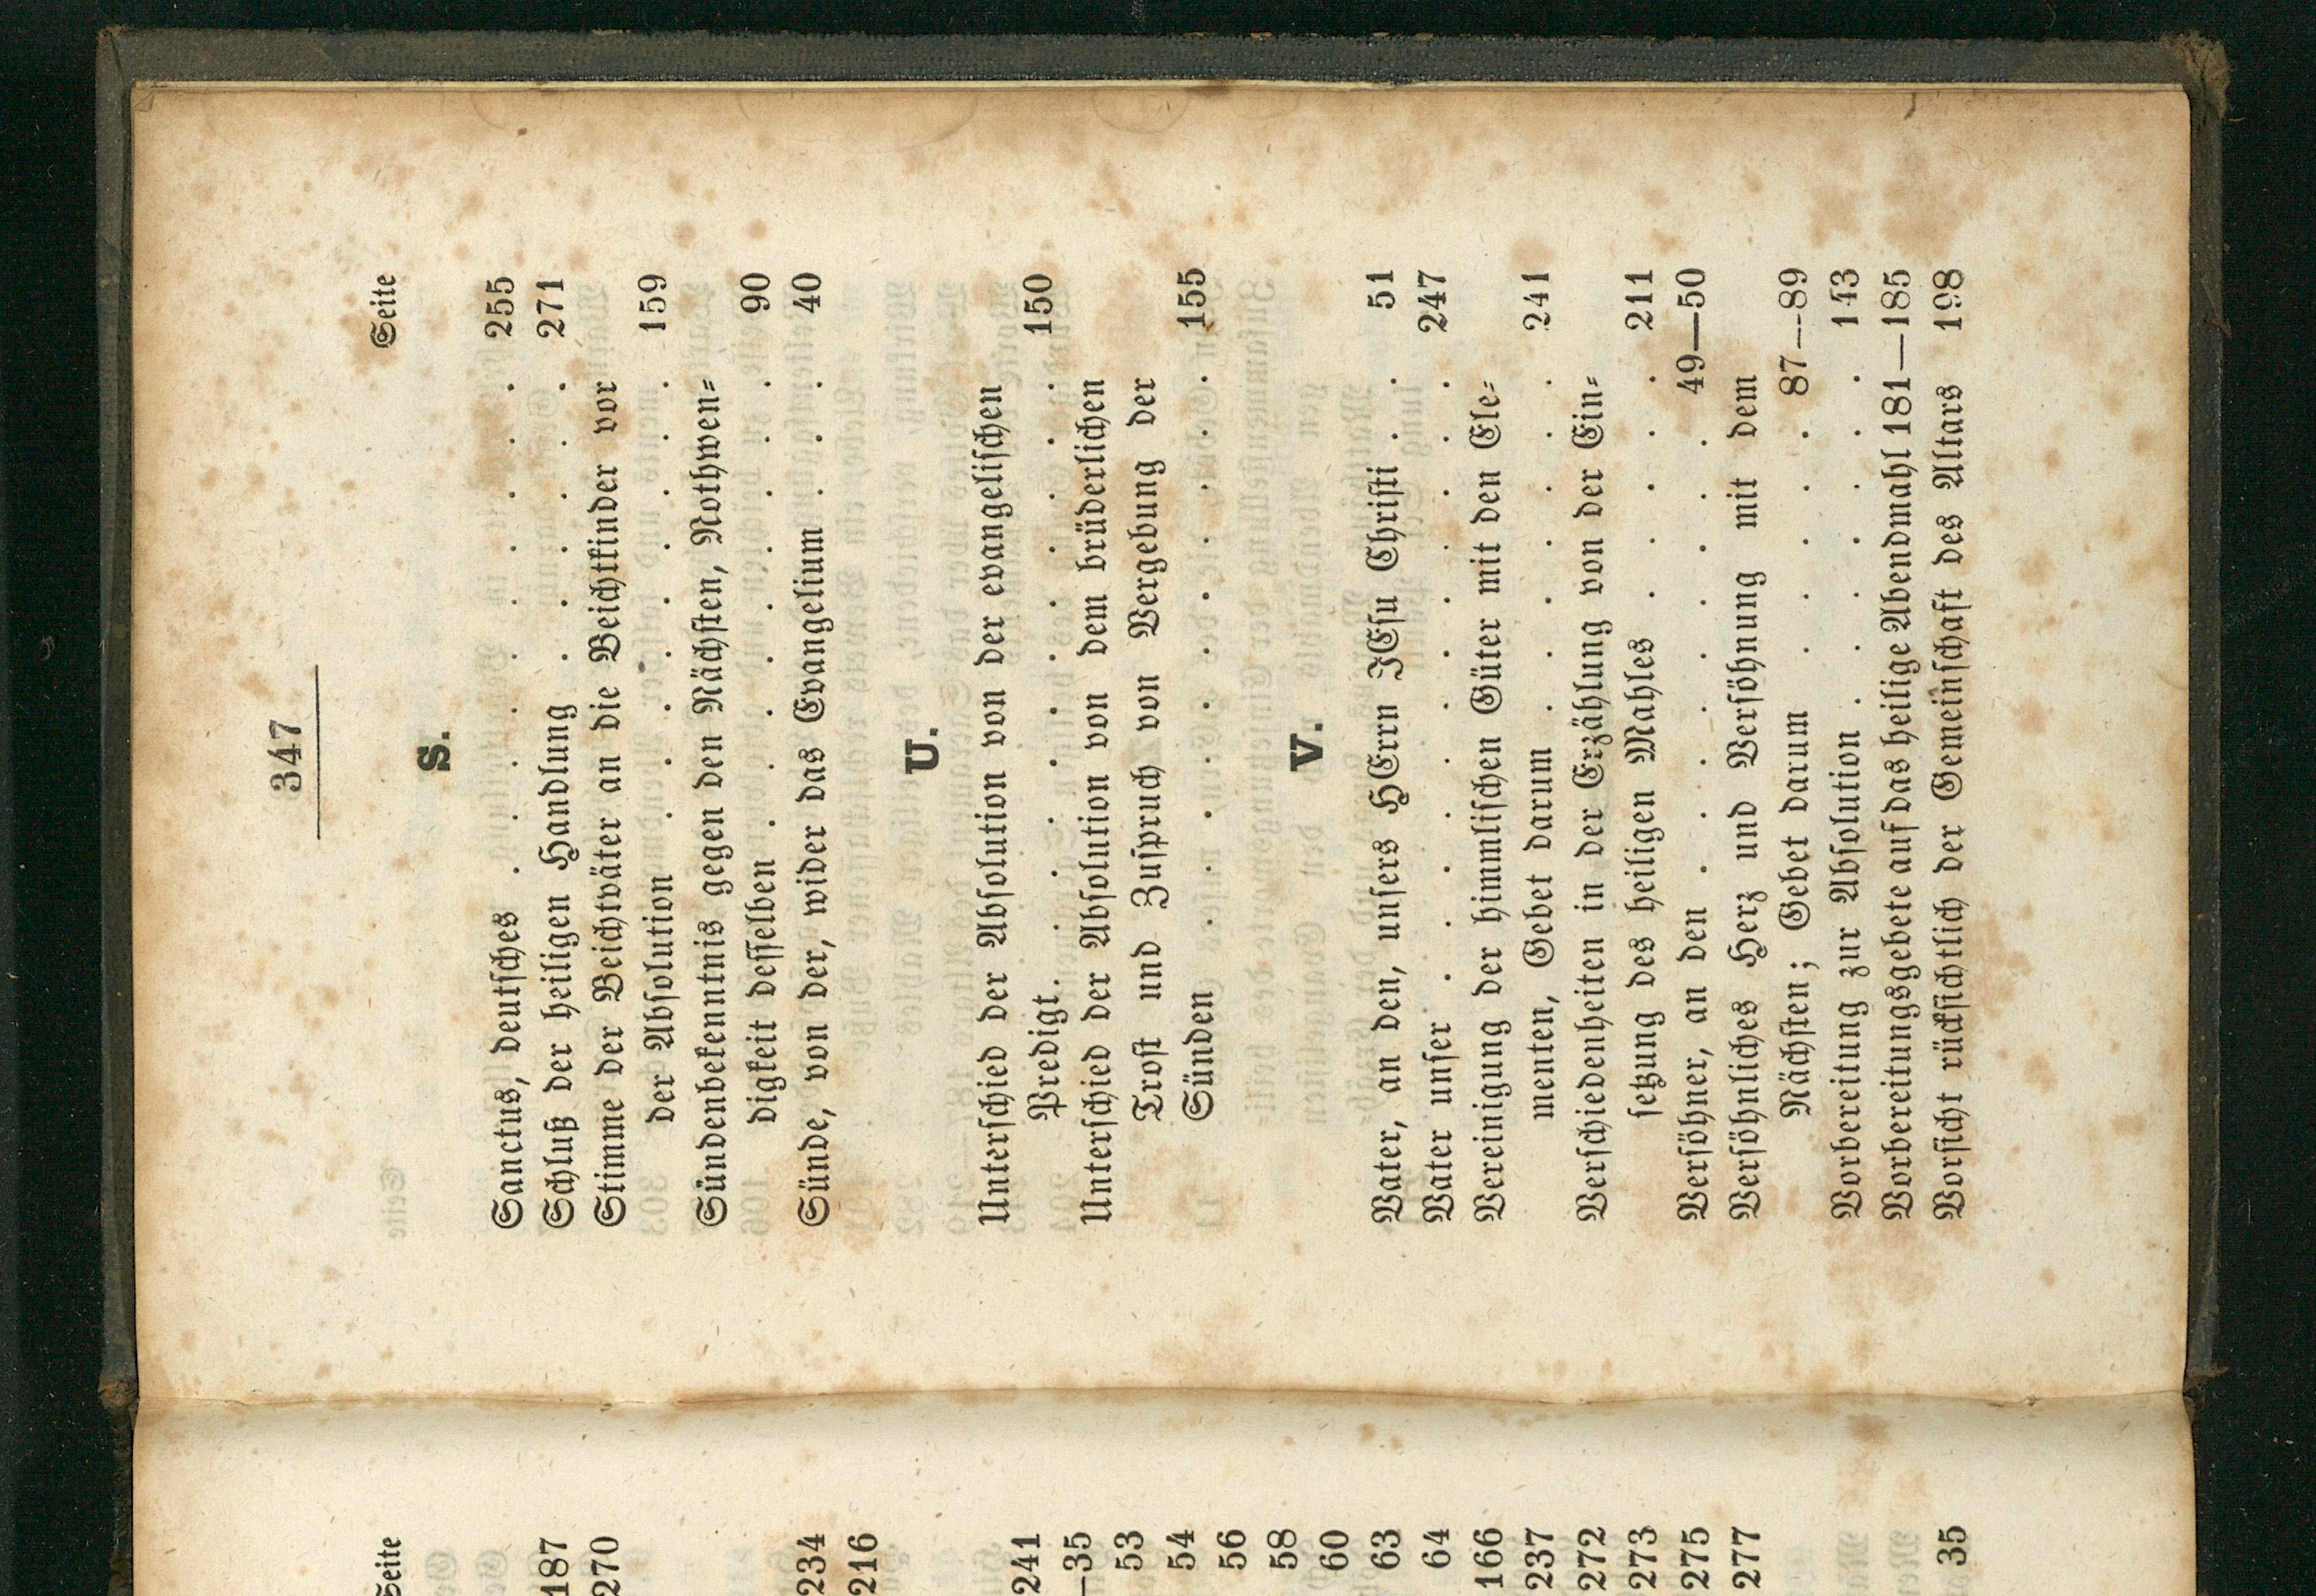 Seite
187
270
234
216
241
—35
53
54
56
58
60
63
64
166
237
272
273
275
277
35
347
Seite
S.
Sanctus, deutsches . . . . . . . . . . 255
Schluß der heiligen Handlung . . . . . . 271
Stimme der Beichtväter an die Beichtkinder vor
der Absolution . . . . . . . . . 159
Sündenbekenntnis gegen den Nächsten, Nothwen⸗
digkeit desselben . . . . . . . . . 90
Sünde, von der, wider das Evangelium . . . 40
U.
Unterschied der Absolution von der evangelischen
Predigt . . . . . . . . . . . 150
Unterschied der Absolution von dem brüderlichen
Trost und Zuspruch von Vergebung der
Sünden . . . . . . . . . . . 155
V.
Vater, an den, unsers HErrn JEsu Christi . . 51
Vater unser . . . . . . . . . . . . 247
Vereinigung der himmlischen Güter mit den Ele⸗
menten, Gebet darum . . . . . . . 241
Verschiedenheiten in der Erzählung von der Ein⸗
setzung des heiligen Mahles . . . . . 211
Versöhner, an den . . . . . . . . . 49—50
Versöhnliches Herz und Versöhnung mit dem
Nächsten; Gebet darum . . . . . 87—89
Vorbereitung zur Absolution . . . . . . . 143
Vorbereitungsgebete auf das heilige Abendmahl 181—185
Vorsicht rücksichtlich der Gemeinschaft des Altars 198